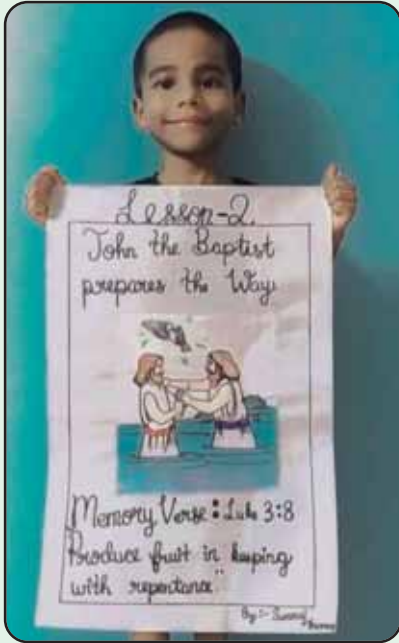 Lesson-2.
John the Baptist
prepares the Way
Memory Verse : Luke 3:8
Produce fruit in keeping
with repentance"
By :-